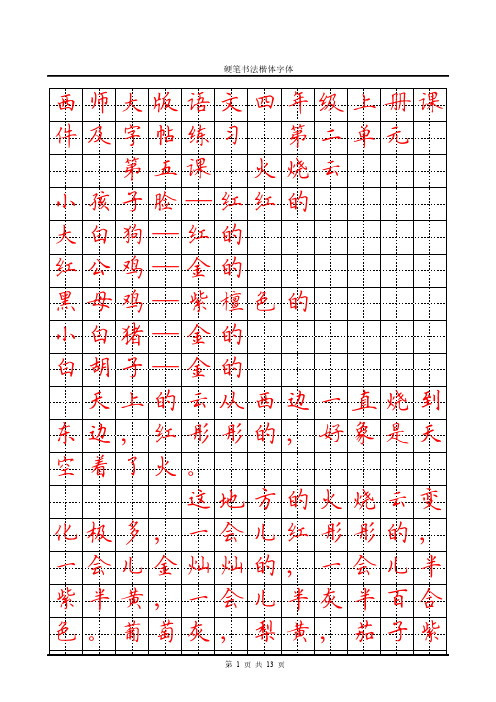 硬笔书法楷体字体
西师大版语文四年级上册课
件及字帖练习 第二单元
第五课 火烧云
小孩子脸—红红的
大白狗—红的
红公鸡—金的
黑母鸡—紫檀色的
小白猪—金的
白胡子—金的
天上的云从西边一直烧到
东边，红彤彤的，好象是天
空着了火。
这地方的火烧云变
化极多，一会儿红彤彤的，
一会儿金灿灿的，一会儿半
紫半黄，一会儿半灰半百合
色。葡萄灰，梨黄，茄子紫
第 1 页 共 13 页